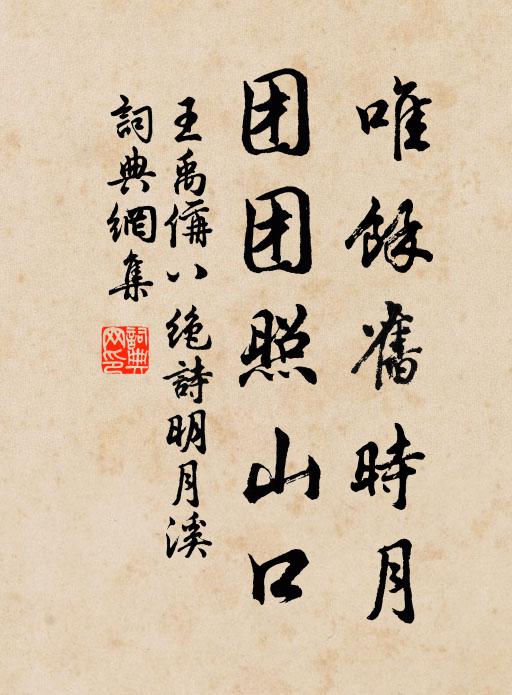 唯餘舊時月
团团照山口
王禹偁八绝詩明月溪
詞典網集
詞典网印